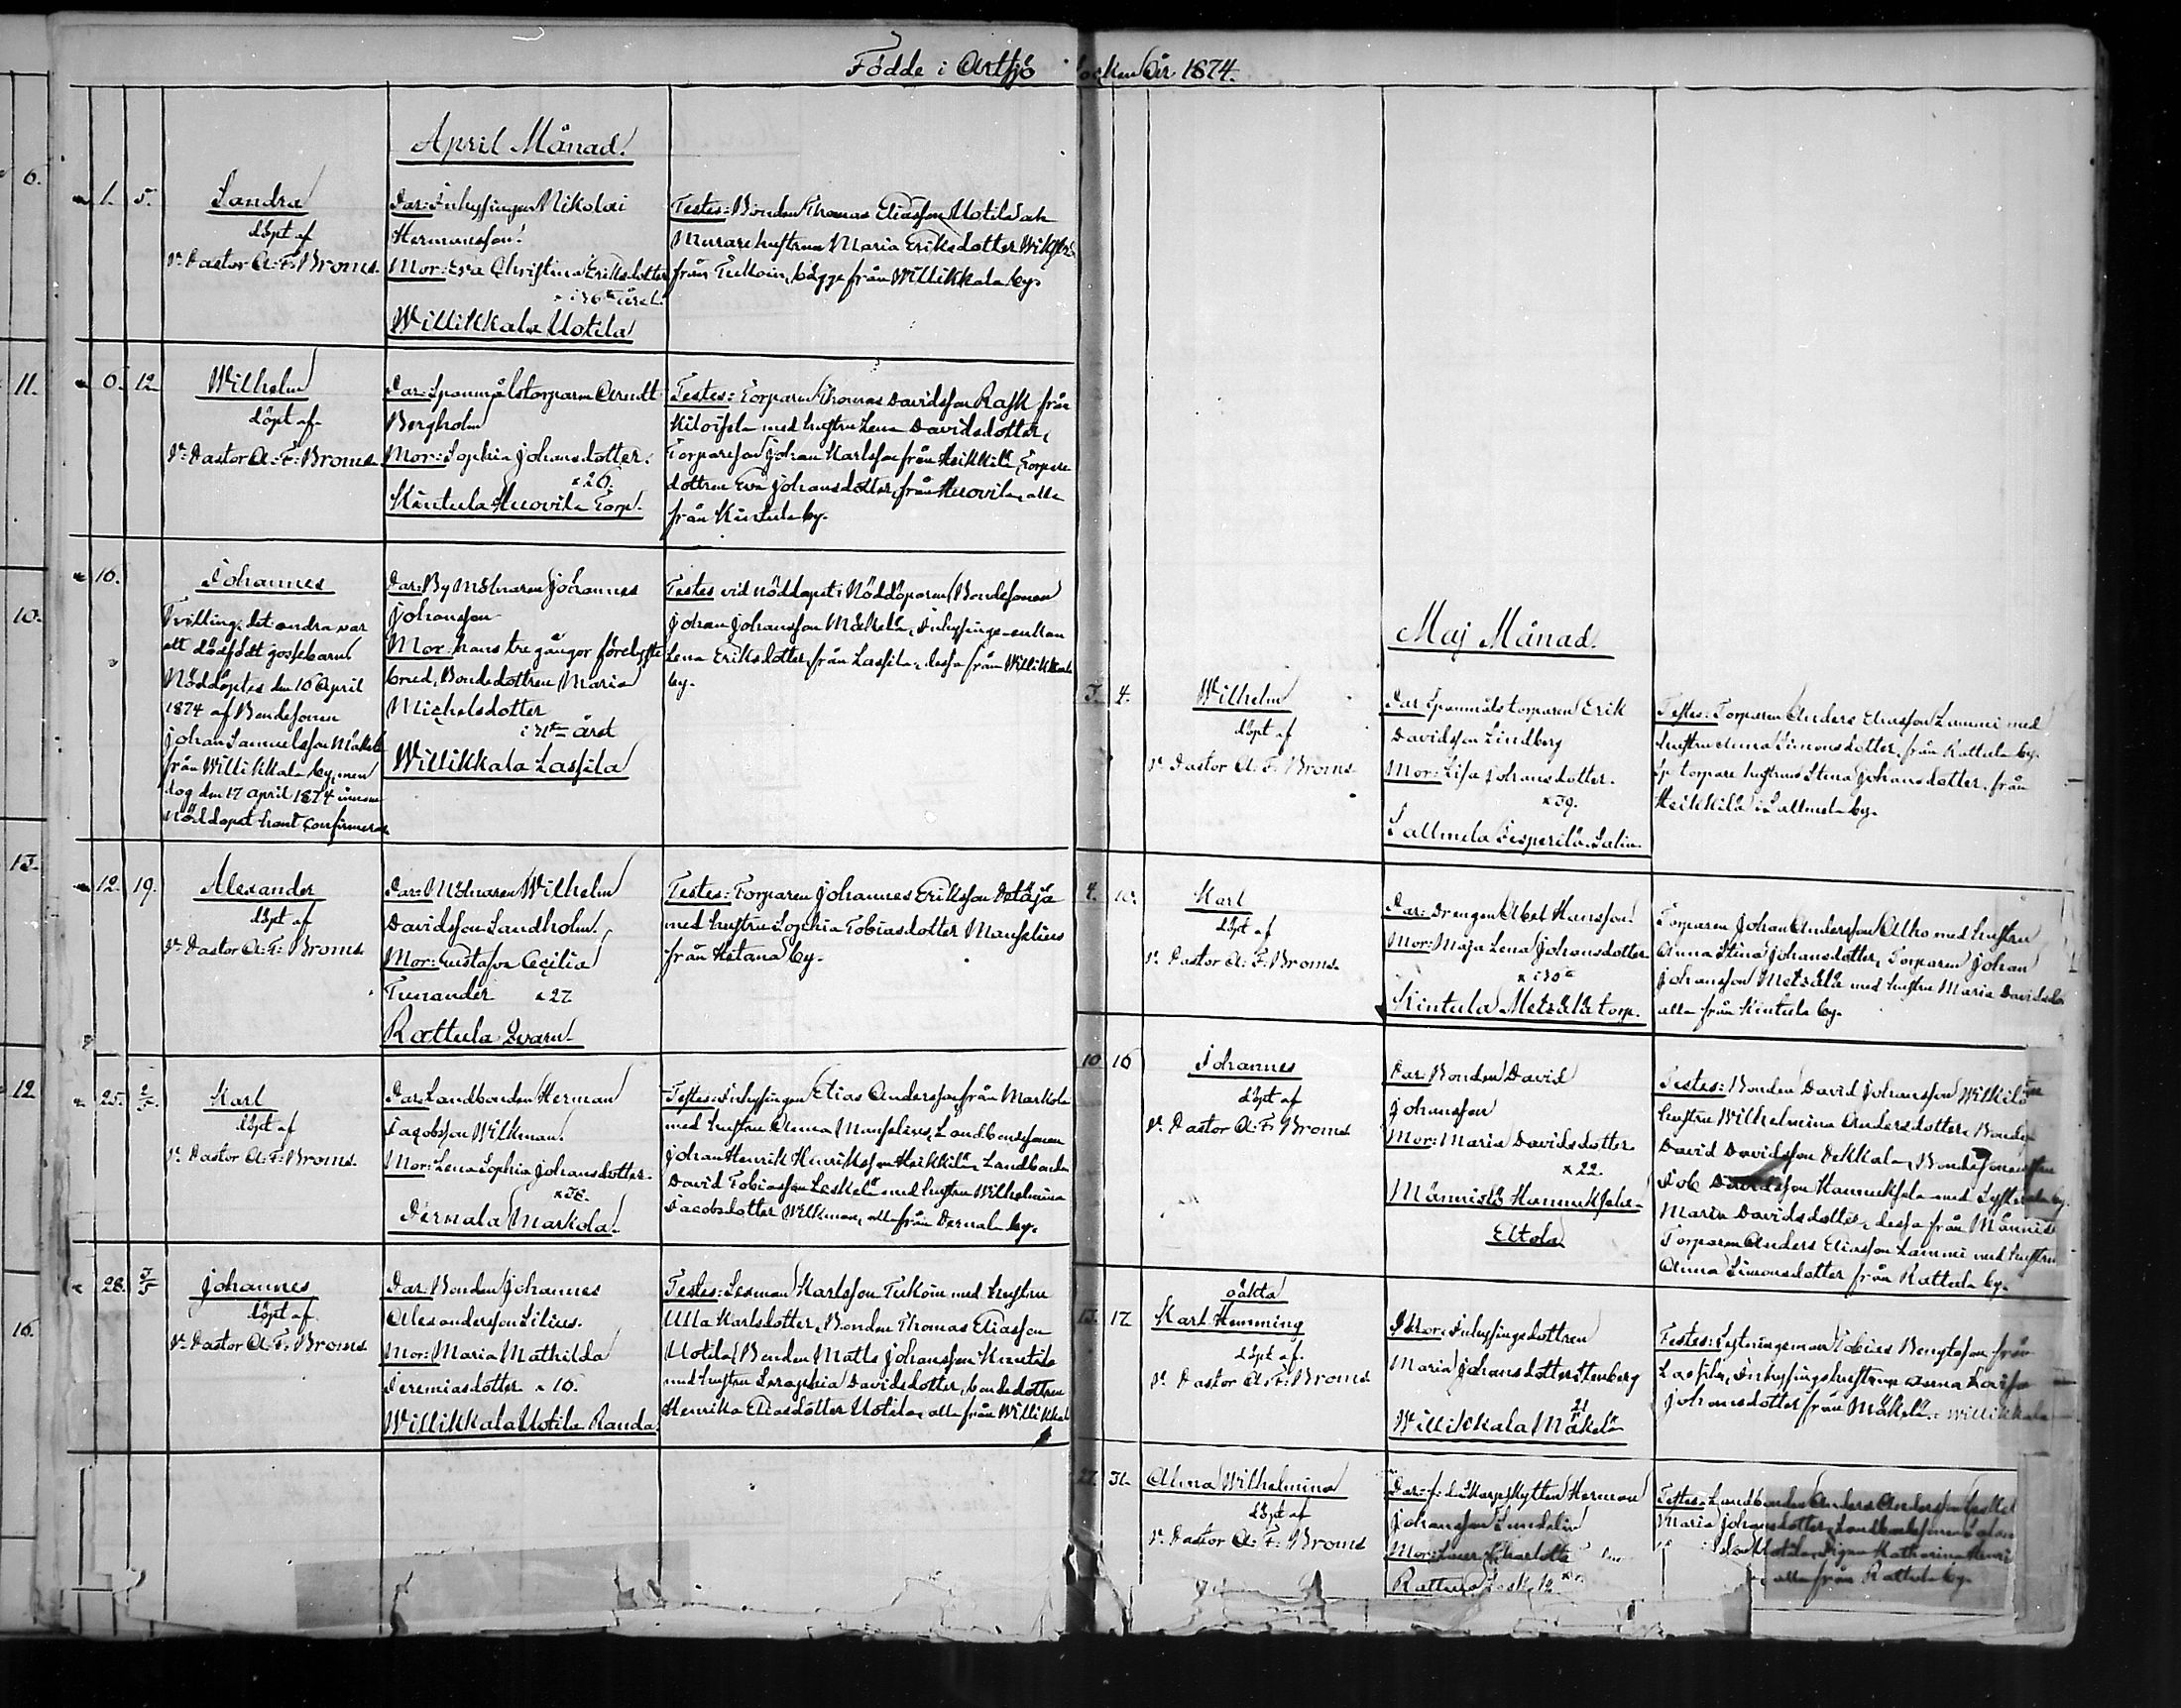 Födde i Artsjö Socken År 1874.
6.
11.
10.
13.
12
16.
April Månad.
1. 5.
Sandra
döpt af
V: Pastor A: F: Broms.
Par: Inhysingen Nikolai
Hermansson.
Mor: Eva Christina Eriksdotter
i 36te året.
Willikkala Uotila
Testes: Bonden Thomas Eliasson Uotila och
Murarehustrun Maria Eriksdotter
från Tukoin, bägge från Willikkala by.
6. 12
Wilhelm
döpt af
V: Pastor A: F: Broms.
Par: Spanmålstorparen Arndt
Bergholm
Mor: Sophia Johansdotter.
x 26.
Kintula Huovila Torp.
Testes: Torparen Thomas Davidsson Rask från
med hustru Lena Davidsdotter,
Torpareson Johan Karlsson från Heikkilä, Torpare
dottren Eva Johansdotter, från Huovila, alla
från Kintula by.
16.
Johannes
Tvilling, det andra var
ett dödfödt gossebarn
Nöddöptes den 16 April
1874 af Bondesonen
Johan Samuelsson Mäkelä
från Willikkala by, men
dog den 17 April 1874 innan
Nöddopet hant confirmeras
Par: By Mölnaren Johannes
Johansson
Mor: hans tre gånger förelyste
brud, Bondedottren Maria
Michelsdotter
i 31te året
Willikkala Lassila
Testes vid nöddopet: Nöddöparen, Bondesonen
Johan Johansson Mäkelä, Inhysinge enkan
Lena Eriksdotter, från Lassila, dessa från Willikkala
by.
12. 19.
Alexander
döpt af
V: Pastor A: F: Broms.
Par: Mölnaren Wilhelm
Davidsson Landholm.
Mor: Gustafva Cecilia
Tunander x 27
Rattula Qvarn.
Testes: Torparen Johannes Eriksson
med hustru Sophia Tobiasdotter Manselius
från Hietana by.
25. 2/5.
Karl
döpt af
V: Pastor A: F: Broms.
Par: Landbonden Herman
Jacobsson Wilkman.
Mor: Lena Sophia Johansdotter.
x 38.
Pernala Markola.
Testes: Inhysingen Elias Andersson från Markola
med hustru Anna Manselius, Landbondesonen
Johan Henrik Henriksson Heikkilä, Landbonden
David Tobiasson Leskelä med hustru Wilhelmina
Jacobsdotter Wilkman, alla från Pernala by.
28. 3/5
Johannes
döpt af
V: Pastor A: F: Broms
Par: Bonden Johannes
Alexandersson Silius.
Mor: Maria Mathilda
Jeremiasdotter x 16.
Willikkala Uotila Randa.
Testes: Herman Karlsson Tukoin med hustru
Ulla Karlsdotter, Bonden Thomas Eliasson
Uotila, Bonden Matts Johansson Knutila
med hustru Seraphia Davidsdotter, bondedottren
Henrika Eliasdotter Uotila, alla från Willikkala
Maj Månad.
3. 4.
Wilhelm
döpt af
V: Pastor A: F: Broms
Par: Spanmålstorparen Erik
Davidsson Lindberg
Mor: Lisa Johansdotter.
x 39.
Sallmela Jesperilä Salin.
Testes: Torparen Anders Eliasson Lammi med
hustru Anna Simonsdotter, från Rattula by.
Sp torpare hustrun Stina Johansdotter, från
Heikkilä i Sallmela by.
4. 10.
Karl
döpt af
V. Pastor A: F: Broms.
Par: Drengen Abel Hansson.
Mor: Maja Lena Johansdotter
x i 30e
Kintula Metsälä torp.
Torparen Johan Andersson Alho med hustru
Anna Stina Johansdotter, Torparen Johan
Johansson Metsälä med hustru Maria Davidsdo
alla från Kintula by.
10 16
Johannes
döpt af
V. Pastor A: F: Broms
Par: Bonden David
Johansson
Mor: Maria Davidsdotter
x 22.
Männistö Hannuksela
Eltola
Testes: Bonden David Johansson
hustru Wilhelmina Andersdotter,
David Davidsson Pekkala,
Job Davidsson Hannuksela med
Maria Davidsdotter, dessa från Männis
Torparen Anders Eliasson Lammi med hustru
Anna Simonsdotter från Rattula by.
13. 17
oäkta
Karl Hemming
döpt af
V. Pastor A: F: Broms
Mor: Inhysingedottren
Maria Johansdotter Stenberg
21
Willikkala Mäkelä
Testes: Tobias Bengtsson från
Lassila, Inhysingehustrun Anna Kaisa
Johansdotter från Mäkelä, i Willikkala
27. 31.
Alma Wilhelmina
döpt af
V. Pastor A: F: Broms
Par: f. d. Skarpskytten Herman
Johansson Sundelin
Mor: Charlotte
Rattula
Testes: Landbonden Anders Andersson
Maria Johansdotter, Landbondesonen
Katharina
alla från Rattula by.